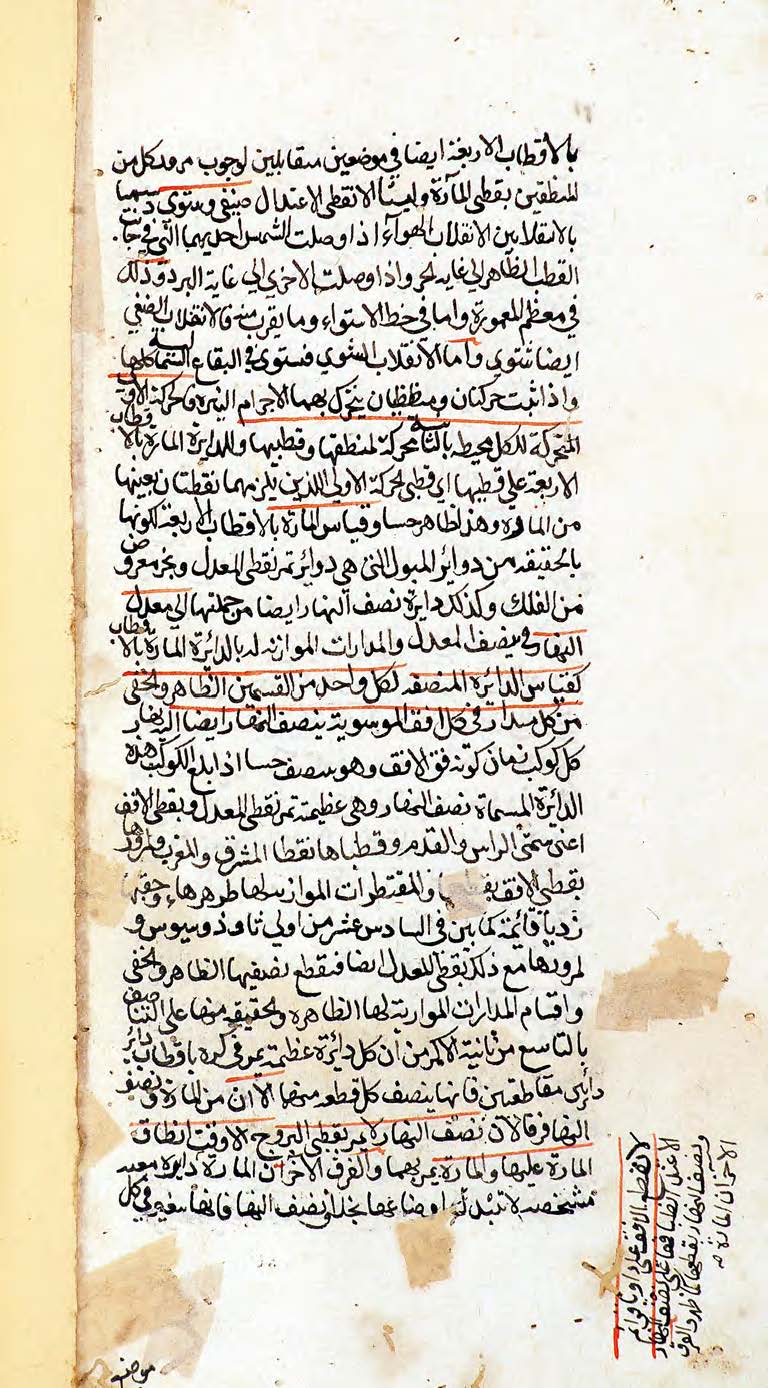 بالاقطاب الاربعة ايضا في موضعين متقابلين لوجوب مرور كل من
المنطقتين بقطبي المآرة وليستا الا نقطتي الاعتدال صيفي وشتوي
بالانقلابين لانقلاب الهوآء اذا وصلت الشمس احديهما التي في جانب
القطب الظاهر الي غاية الحر واذا وصلت الاخري الي غاية البرد وذلك
في معظم المعمورة واما في خط الاستواء وما يقرب منه فالانقلاب الصيفي
ايضا شتوي وأما الانقلاب الشتوي فشتوي في البقاع الشمالية كلها
واذا ثبت حركتان ومنطقتان يتحرك بهما الاجرام النيرة فالحركة الاولي
المتحركة للكل محيطه بالثانية محركة لمنطقتها وقطبيها وللدايرة المارة بالاقطاب
الاربعة علي قطبيها اي قطبي الحركة الاولي اللذين يلزمهما نقطتان بعينها
من المارة وهذا ظاهر حسا وقياس المارة بالاقطاب الاربعة لكونها
بالحقيقه من دواير الميول التي هي دواير تمر بقطبي المعدل وبجزء معروض
من الفلك وكذلك دايرة نصف النهار ايضا من جملتها الي معدل
النهار في تنصيف المعدل والمدارات الموازنه له بالدائرة المارة بالاقطاب
كقياس الدائرة المنصفه لكل واحد من القسمين الظاهر والخفي
من كل مدار في كل افق الموسوية بنصف النهار ايضا اليه نهار
كل كوكب زمان كونه فوق الافق وهو ينتصف حسا اذا بلغ الكوكب هذه
الدائرة المسماة نصف النهار وهي عظيمة تمر بقطبي المعدل وبقطبي الافق
اعني سمتي الراس والقدم وقطباها نقطتا المشرق والمغرب ولمرورها
بقطبي الافق والمقنطرات الموازية لها ظاهرها وخفيها
زوايا قائمة كما بين في السادس عشر من اولي ثاوذوسيوس و
لمرورها مع ذلك بقطبي المعدل ايضا فتقطع نصفيها الظاهر والخفي
واقسام المدارات الموازية لها الظاهره والحقيقه منها علي التناصف
بالتاسع من ثانية الاكر من ان كل دائرة عظيمة تمر في كره باقطاب دائر
دائرتي متقاطعتين فانها ينصف كل قطعه منهما الا ان من المارة ونصف
النهار فرقا لان نصف النهار لا يمر بقطبي البروج الا وقت انطباق
المارة عليها والمارة يمر بهما والفرق الاخر ان المارة دايرة معينه
مشخصه لا تتبدل لها اوضاعها بخلاف نصف النهار فانها يتغير في كل
موضع
لانقطع الافق علي زوايا قوائم
وتنصف النهار بقطبيهما
الآخر ان المارة